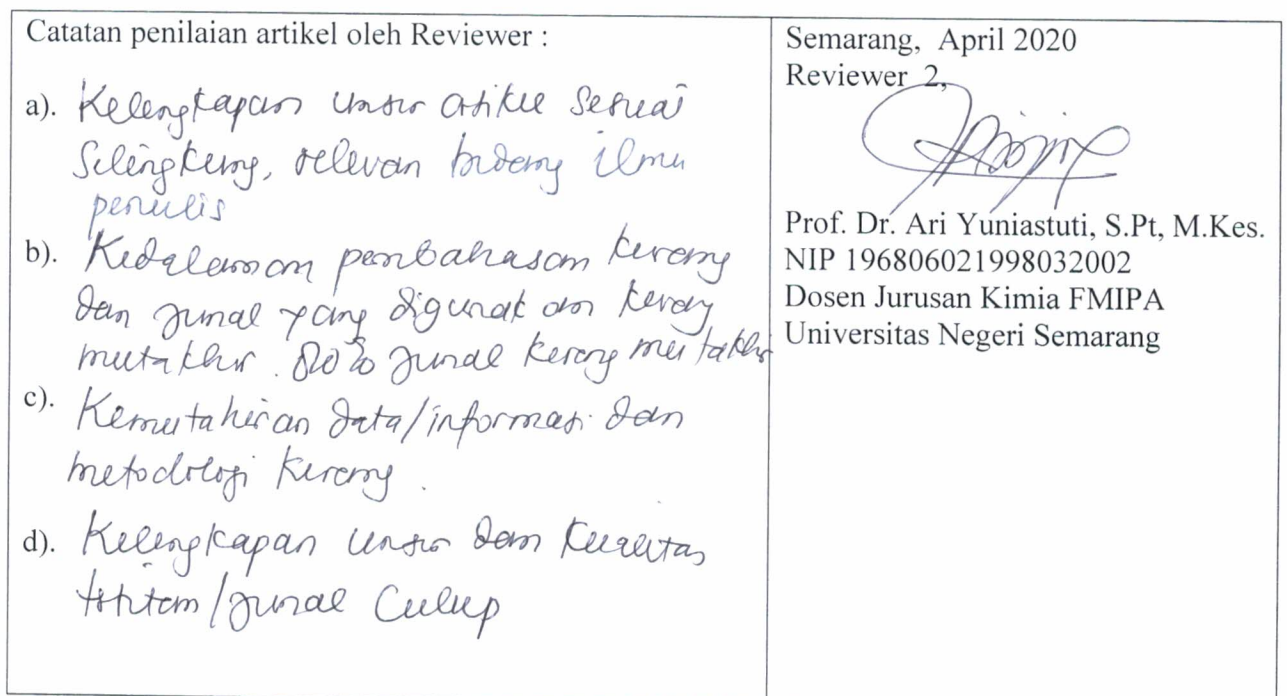 Catatan penilaian artikel oleh Reviewer :
a). Kelengkapan unsur artikel sesuai
selingkung, relevan bidang ilmu
penulis
b). Kedalaman pembahasan kurang
dan jurnal yang digunakan kurang
mutakhir. 80% jurnal kurang mutakhir
c). Kemutahiran data/informasi dan
metodologi kurang.
d). Kelengkapan unsur dan kualitas
/jurnal Cukup
Semarang, April 2020
Reviewer 2,
Prof. Dr. Ari Yuniastuti, S.Pt, M.Kes.
NIP 196806021998032002
Dosen Jurusan Kimia FMIPA
Universitas Negeri Semarang